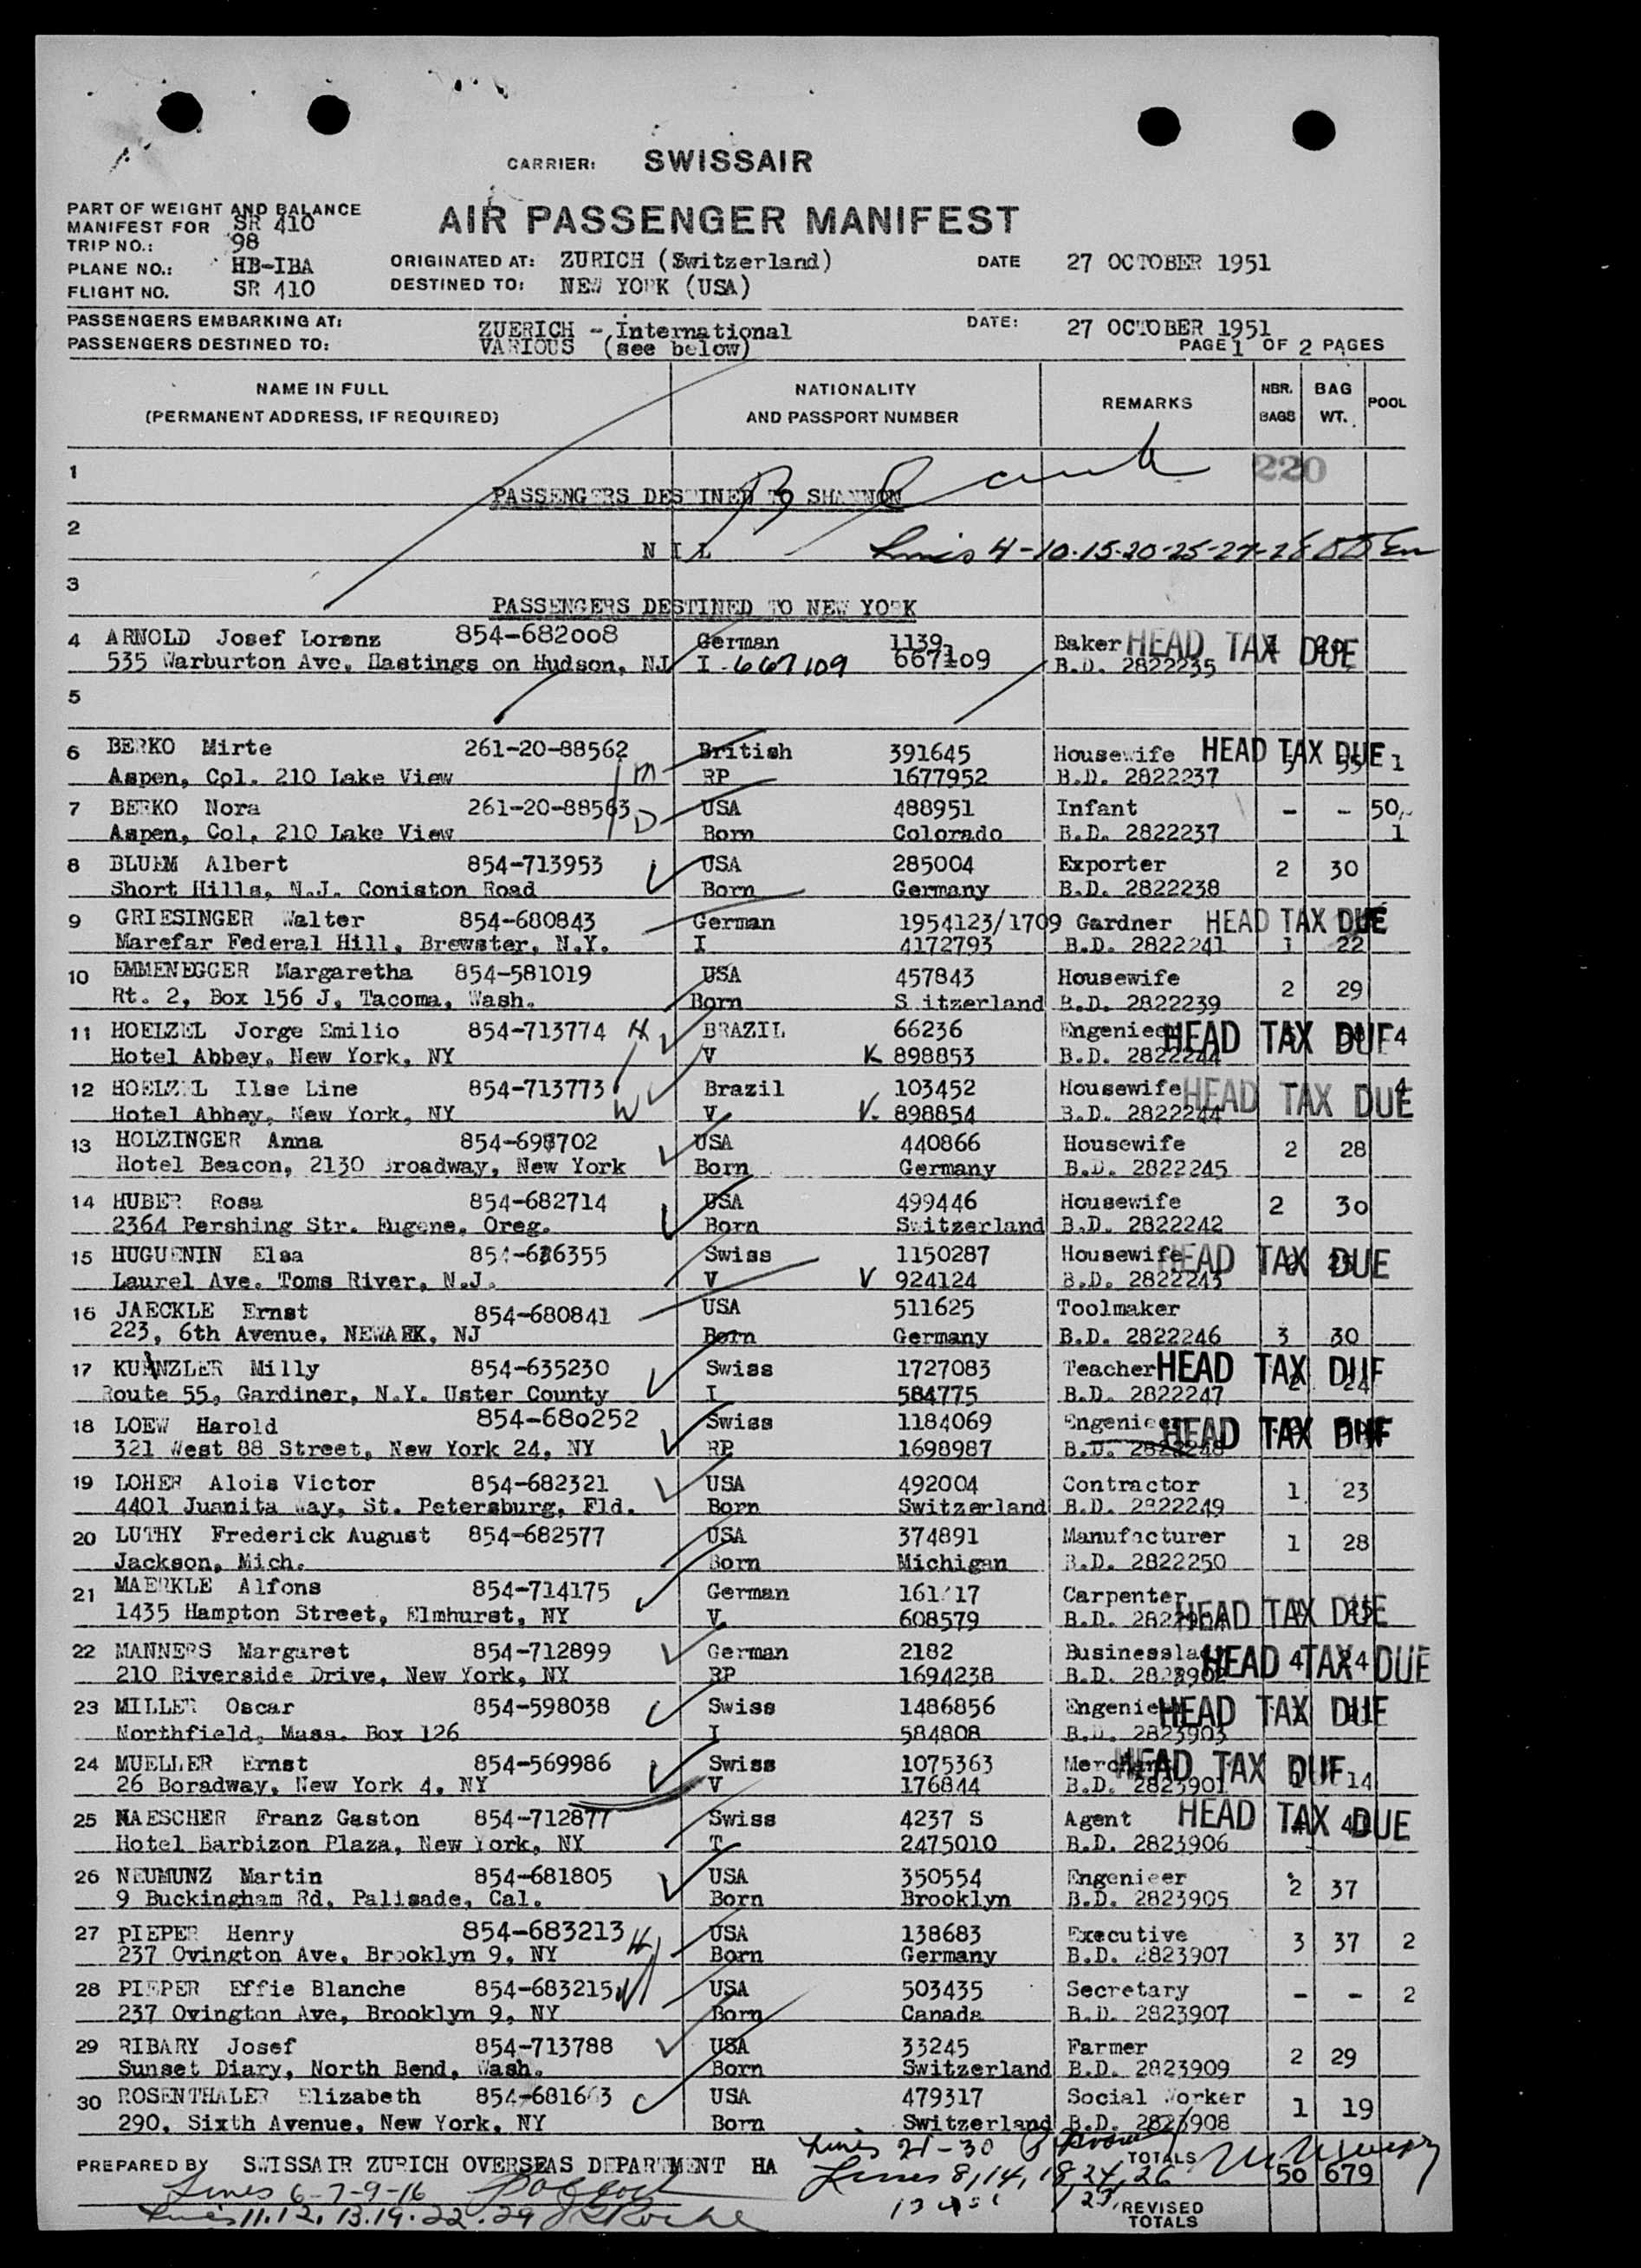 CARRIER: SWISSAIR
PART OF WEIGHT AND BALANCE
MANIFEST FOR SR 410
TRIP NO.: 98
PLANE NO.: HB-IBA
FLIGHT NO. SR 410
AIR PASSENGER MANIFEST
ORIGINATED AT: ZURICH (Switzerland) DATE 27 OCTOBER 1951
DESTINED TO: NEW YORK (USA)
PASSENGERS EMBARKING AT: ZUERICH - International DATE: 27 OCTOBER 1951
PASSENGERS DESTINED TO: VARIOUS (see below) PAGE 1 OF 2 PAGES
NAME IN FULL NATIONALITY REMARKS NBR. BAG POOL
(PERMANENT ADDRESS, IF REQUIRED) AND PASSPORT NUMBER BAGS WT.
1 220
PASSENGERS DESTINED TO SHANNON
2
NIL 4-10-15-20-25-27-28
3
PASSENGERS DESTINED TO NEW YORK
4 ARNOLD Josef Lorenz 854-682008 German 1139 Baker HEAD TAX DUE
535 Warburton Ave, Hastings on Hudson, NJ I-667109 667109 B.D. 2822235
5
6 BERKO Mirte 261-20-88562 British 391645 Housewife HEAD TAX DUE 1
Aspen, Col. 210 Lake View M RP 1677952 B.D. 2822237
7 BERKO Nora 261-20-88563 USA 488951 Infant - - 50
Aspen, Col. 210 Lake View D Born Colorado B.D. 2822237 1
8 BLUEM Albert 854-713953 USA 285004 Exporter 2 30
Short Hills, N.J. Coniston Road Born Germany B.D. 2822238
9 GRIESINGER Walter 854-680843 German 1954123/1709 Gardner HEAD TAX DUE
Marefar Federal Hill, Brewster, N.Y. I 4172793 B.D. 2822241 1 22
10 EMMENEGGER Margaretha 854-581019 USA 457843 Housewife 2 29
Rt. 2, Box 156 J, Tacoma, Wash. Born S itzerland B.D. 2822239
11 HOELZEL Jorge Emilio 854-713774 H BRAZIL 66236 Engenieer HEAD TAX DUE 4
Hotel Abbey, New York, NY V 898853 B.D. 2822244
12 HOELZEL Ilse Line 854-713773 Brazil 103452 Housewife HEAD TAX DUE 4
Hotel Abbey, New York, NY W V V. 898854 B.D. 2822244
13 HOLZINGER Anna 854-698702 USA 440866 Housewife 2 28
Hotel Beacon, 2130 Broadway, New York Born Germany B.D. 2822245
14 HUBER Rosa 854-682714 USA 499446 Housewife 2 30
2364 Pershing Str. Eugene, Oreg. Born Switzerland B.D. 2822242
15 HUGUENIN Elsa Swiss 1150287 Housewife HEAD TAX DUE
Laurel Ave. Toms River, N.J. V V 924124 B.D. 2822243
16 JAECKLE Ernst 854-680841 USA 511625 Toolmaker
223, 6th Avenue, NEWARK, NJ Born Germany B.D. 2822246 3 30
17 KUENZLER Milly 854-635230 Swiss 1727083 Teacher HEAD TAX DUE
Route 55, Gardiner, N.Y. Uster County I 584775 B.D. 2822247 2 24
18 LOEW Harold 854-680252 Swiss 1184069 Engenieer HEAD TAX DUE
321 West 88 Street, New York 24, NY RP 1698987 B.D. 2822248
19 LOHER Alois Victor 854-682321 USA 492004 Contractor 1 23
4401 Juanita Way, St. Petersburg, Fld. Born Switzerland B.D. 2822249
20 LUTHY Frederick August 854-682577 USA 374891 Manufacturer 1 28
Jackson, Mich. Born Michigan B.D. 2822250
21 MAERKLE Alfons 854-714175 German Carpenter HEAD TAX DUE
1435 Hampton Street, Elmhurst, NY V 608579 B.D.
22 MANNERS Margaret 854-712899 German 2182 Businesslady HEAD TAX DUE 4
210 Riverside Drive, New York, NY RP 1694238 B.D. 2823902
23 MILLER Oscar 854-598038 Swiss 1486856 Engenieer HEAD TAX DUE
Northfield, Mass. Box 126 I 584808 B.D. 2823903
24 MUELLER Ernst 854-569986 Swiss 1075363 Merchant HEAD TAX DUE 14
26 Boradway, New York 4, NY V 176844 B.D. 2823901
25 NAESCHER Franz Gaston 854-712877 Swiss 4237 S Agent HEAD TAX DUE
Hotel Barbizon Plaza, New York, NY T 2475010 B.D. 2823906
26 NEUMUNZ Martin 854-681805 USA 350554 Engenieer 2 37
9 Buckingham Rd, Palisade, Cal. Born Brooklyn B.D. 2823905
27 PIEPER Henry 854-683213 H USA 138683 Executive 3 37 2
237 Ovington Ave, Brooklyn 9, NY Born Germany B.D. 2823907
28 PIEPER Effie Blanche 854-683215 W USA 503435 Secretary - - 2
237 Ovington Ave, Brooklyn 9, NY Born Canada B.D. 2823907
29 RIBARY Josef 854-713788 USA 33245 Farmer 2 29
Sunset Diary, North Bend, Wash. Born Switzerland B.D. 2823909
30 ROSENTHALER Elizabeth USA 479317 Social Worker 1 19
290, Sixth Avenue, New York, NY Born Switzerland B.D. 2823908
Lines 21-30
PREPARED BY SWISSAIR ZURICH OVERSEAS DEPARTMENT HA TOTALS 50 679
Lines 8,14,18,24,26
Lines 6-7-9-16
REVISED
TOTALS
Lines 11.12.13.19.22.29